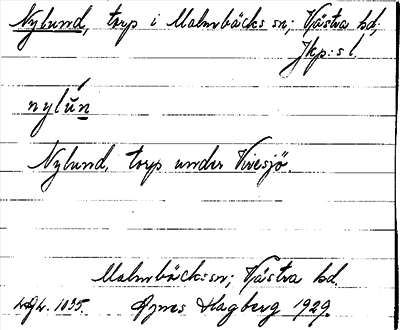 Nylund, torp i Malmbäcks sn; Västra hd;
Jkp:s l.
nylún
Nylund, torp under Vivesjö.
Malmbäcks sn; Västra hd.
Agnes Hagberg 1929.